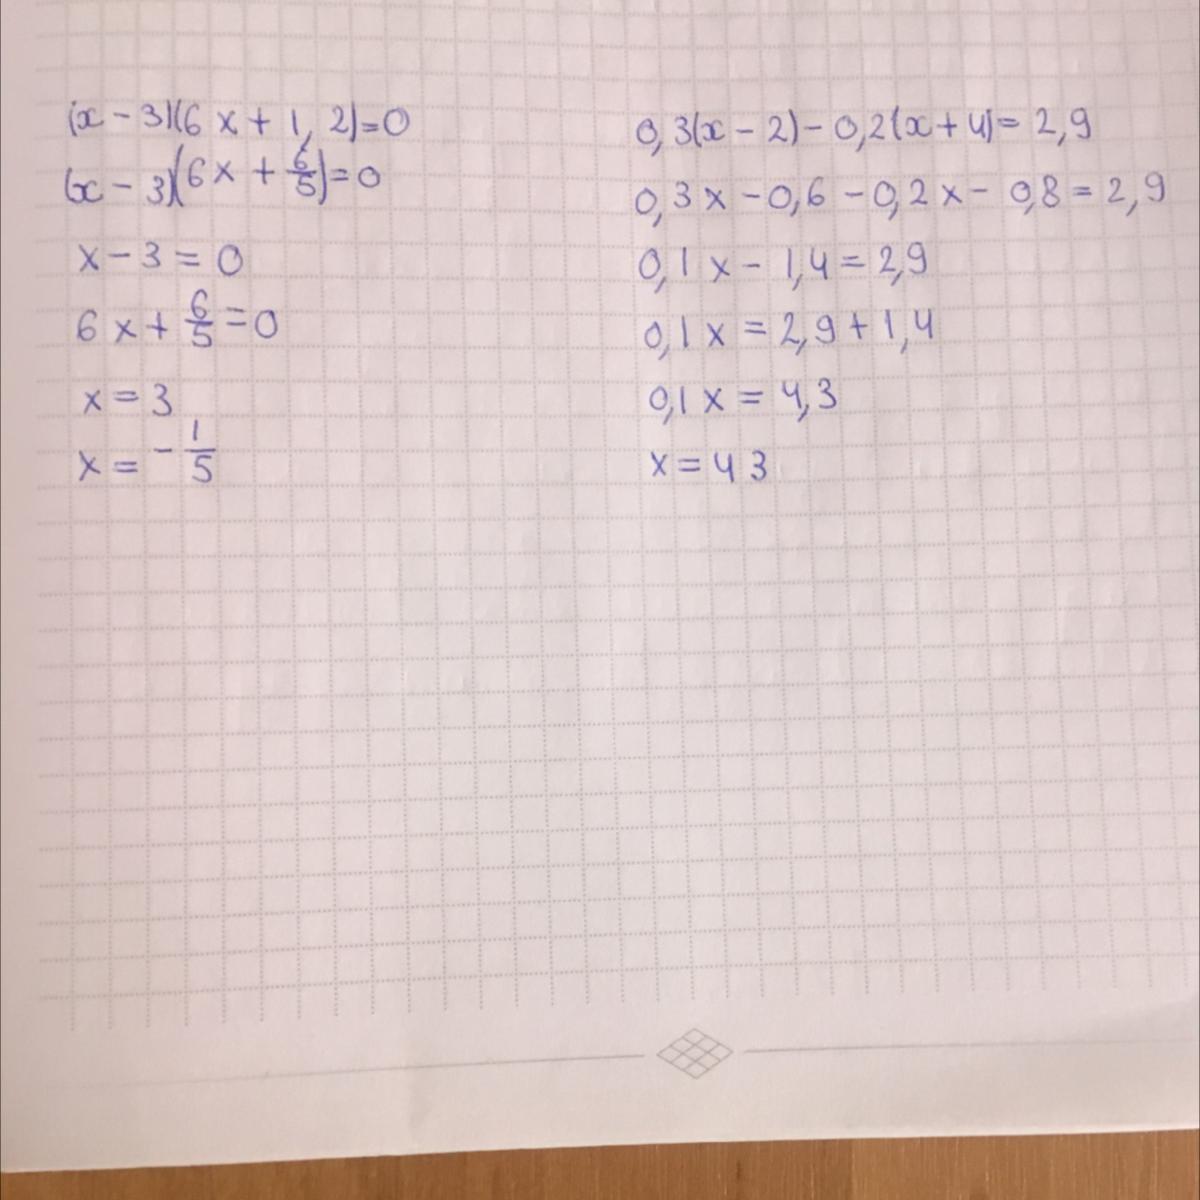 (x - 3)(6x + 1,2)=0
(x - 3)(6x + 6/5)=0
x - 3 = 0
6x + 6/5 = 0
x = 3
x = - 1/5
0,3(x - 2) - 0,2(x + 4) = 2,9
0,3x - 0,6 - 0,2x - 0,8 = 2,9
0,1x - 1,4 = 2,9
0,1x = 2,9 + 1,4
0,1x = 4,3
x = 43